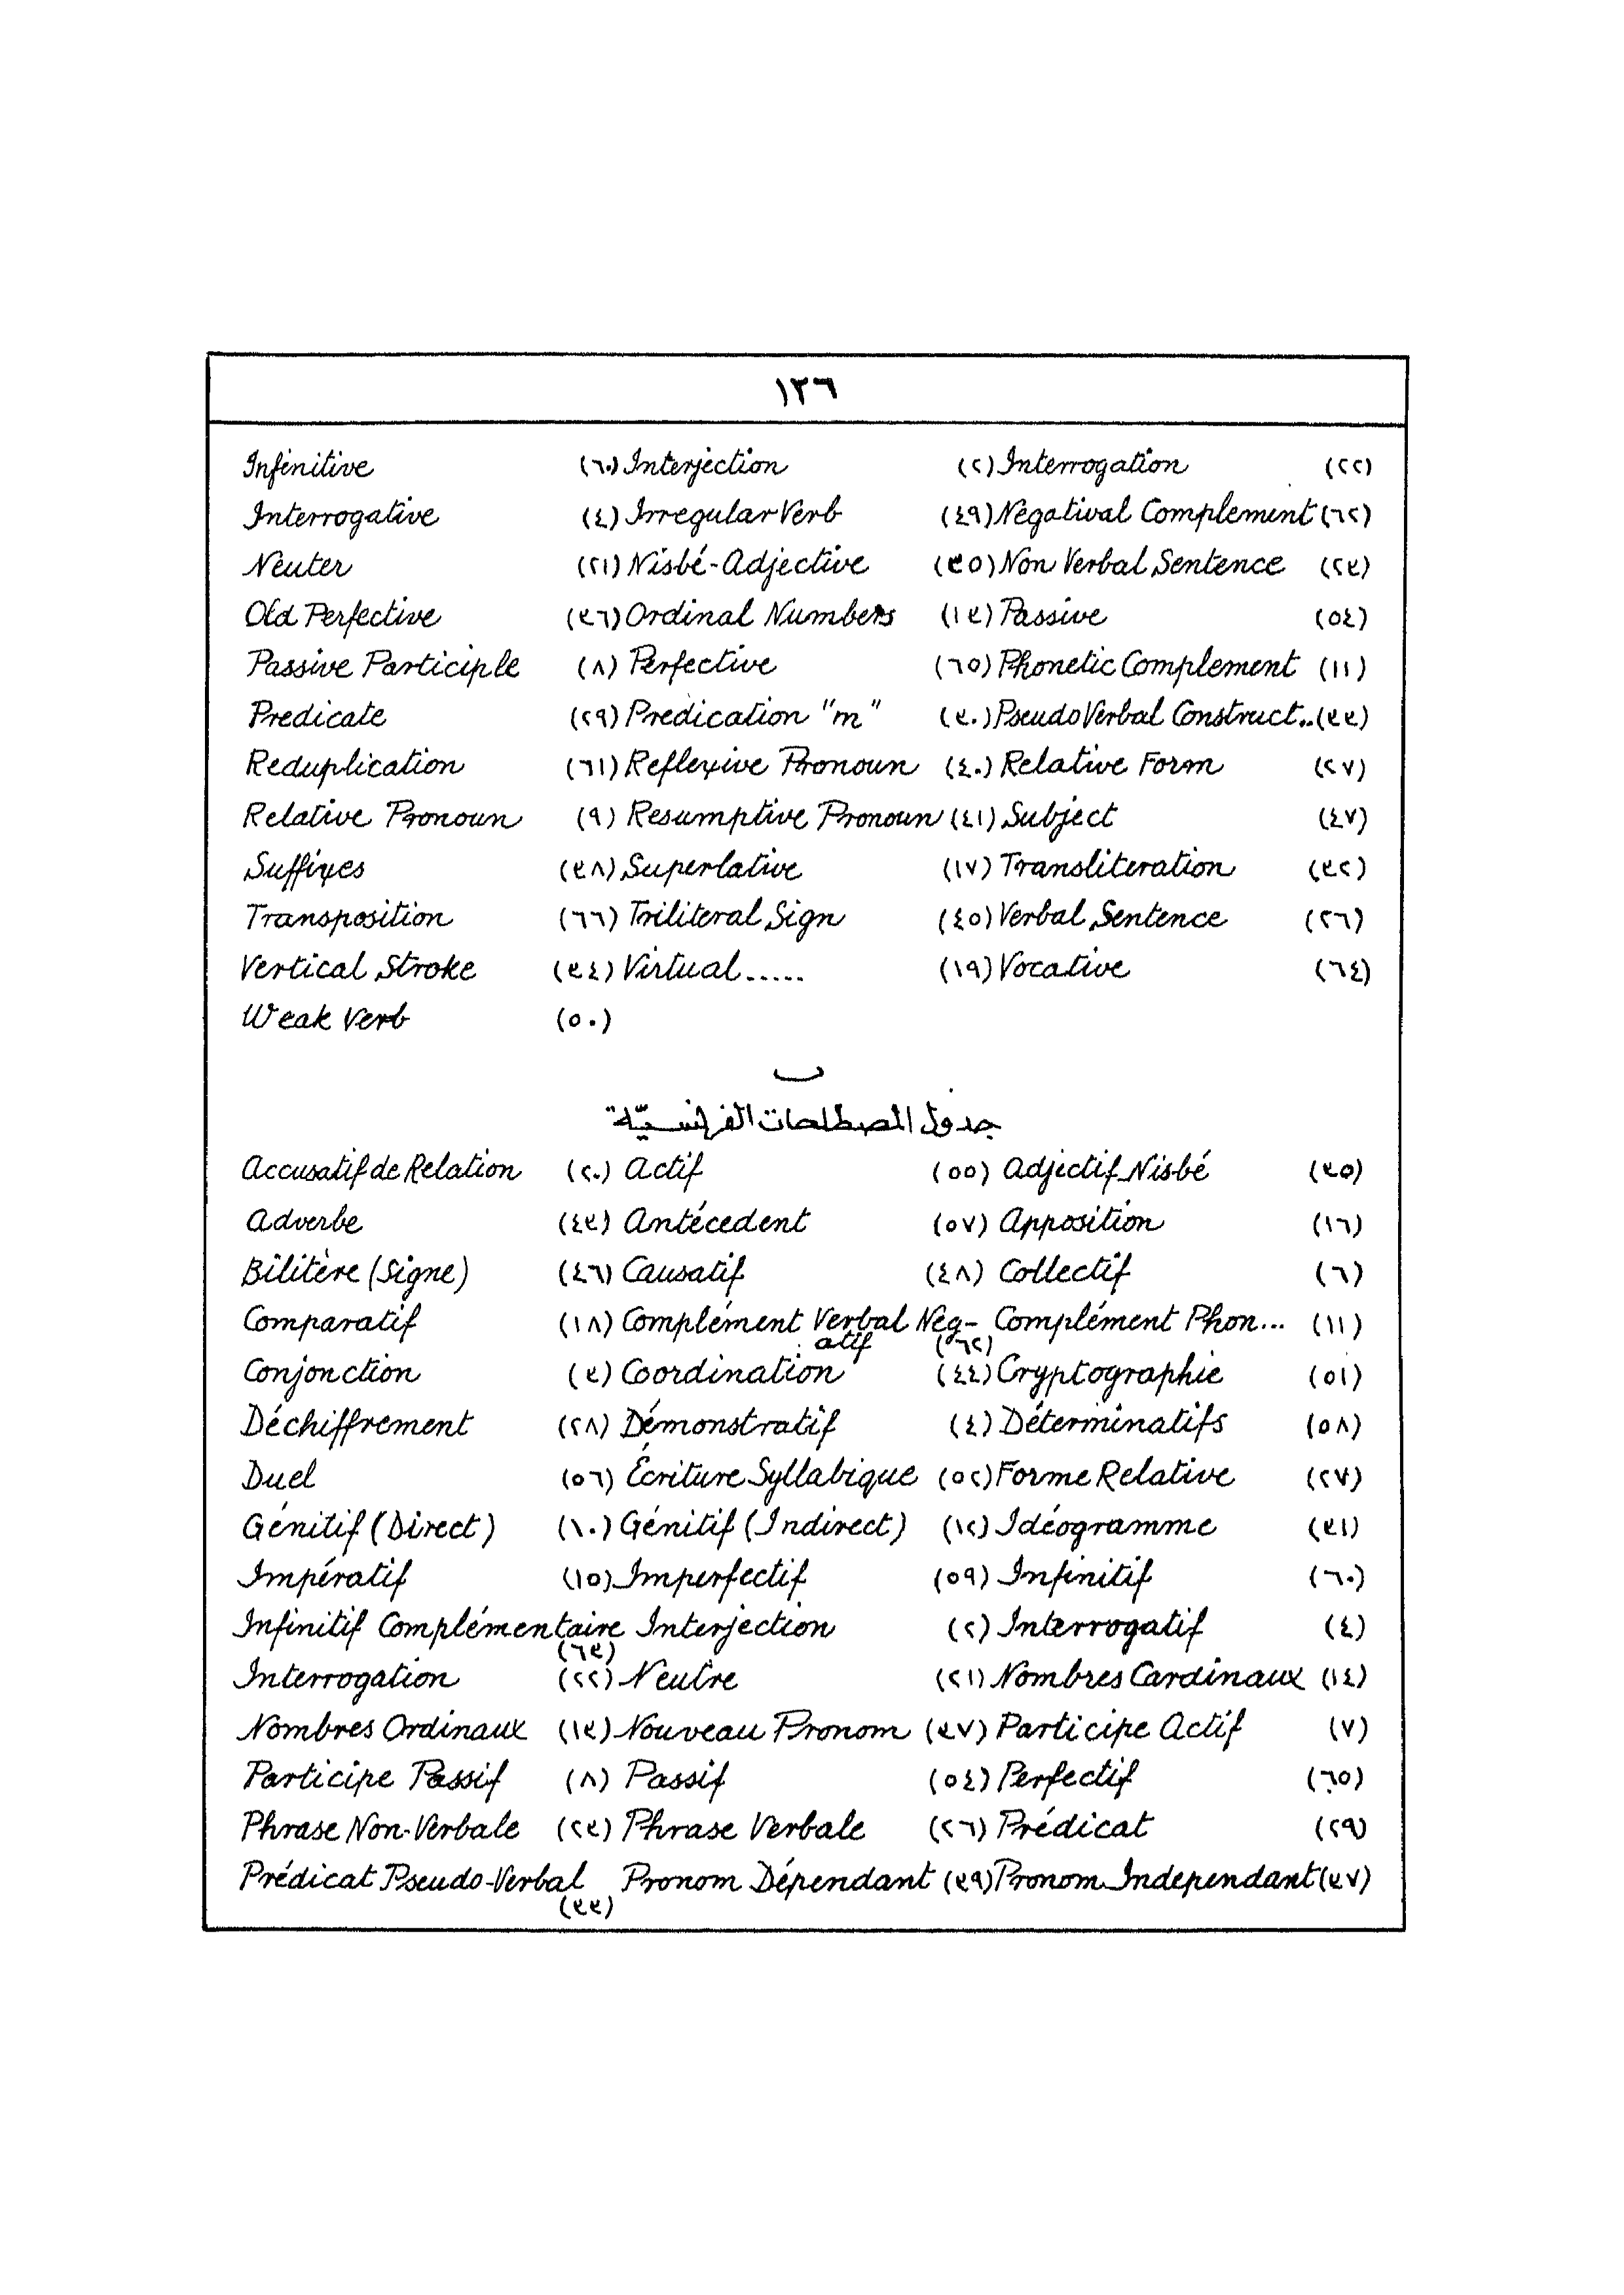 ١٢٦
Infinitive (٦٠) Interjection (٢) Interrogation (٢٢)
Interrogative (٤) Irregular Verb (٤٩) Negatival Complement (٦٢)
Neuter (٢١) Nisbé-Adjective (٣٥) Non Verbal Sentence (٢٣)
Old Perfective (٣٦) Ordinal Numbers (١٣) Passive (٥٤)
Passive Participle (٨) Perfective (٦٥) Phonetic Complement (١١)
Predicate (٢٩) Predication "m" (٣٠) Pseudo Verbal Construct.. (٣٣)
Reduplication (٦١) Reflexive Pronoun (٤٠) Relative Form (٢٧)
Relative Pronoun (٩) Resumptive Pronoun (٤١) Subject (٤٧)
Suffixes (٣٨) Superlative (١٧) Transliteration (٣٢)
Transposition (٦٦) Triliteral Sign (٤٥) Verbal Sentence (٢٦)
Vertical Stroke (٣٤) Virtual..... (١٩) Vocative (٦٤)
Weak Verb (٥٠)
ب
جدول المصطلحات الفرنسيّة
Accusatif de Relation (٢٠) Actif (٥٥) Adjectif Nisbé (٣٥)
Adverbe (٤٣) Antécedent (٥٧) Apposition (١٦)
Bilitère (Signe) (٤٦) Causatif (٤٨) Collectif (٦)
Comparatif (١٨) Complément Verbal Neg- Complément Phon... (١١)
atif (٦٢)
Conjonction (٣) Coordination (٤٤) Cryptographie (٥١)
Déchiffrement (٢٨) Démonstratif (٤) Déterminatifs (٥٨)
Duel (٥٦) Écriture Syllabique (٥٢) Forme Relative (٢٧)
Génitif (Direct) (١٠) Génitif (Indirect) (١٢) Idéogramme (٣١)
Impératif (١٥) Imperfectif (٥٩) Infinitif (٦٠)
Infinitif Complémentaire Interjection (٢) Interrogatif (٤)
(٦٣)
Interrogation (٢٢) Neutre (٢١) Nombres Cardinaux (١٤)
Nombres Ordinaux (١٣) Nouveau Pronom (٣٧) Participe Actif (٧)
Participe Passif (٨) Passif (٥٤) Perfectif (٦٥)
Phrase Non-Verbale (٢٣) Phrase Verbale (٢٦) Prédicat (٢٩)
Prédicat Pseudo-Verbal Pronom Dépendant (٣٩) Pronom Independant (٣٧)
(٣٣)